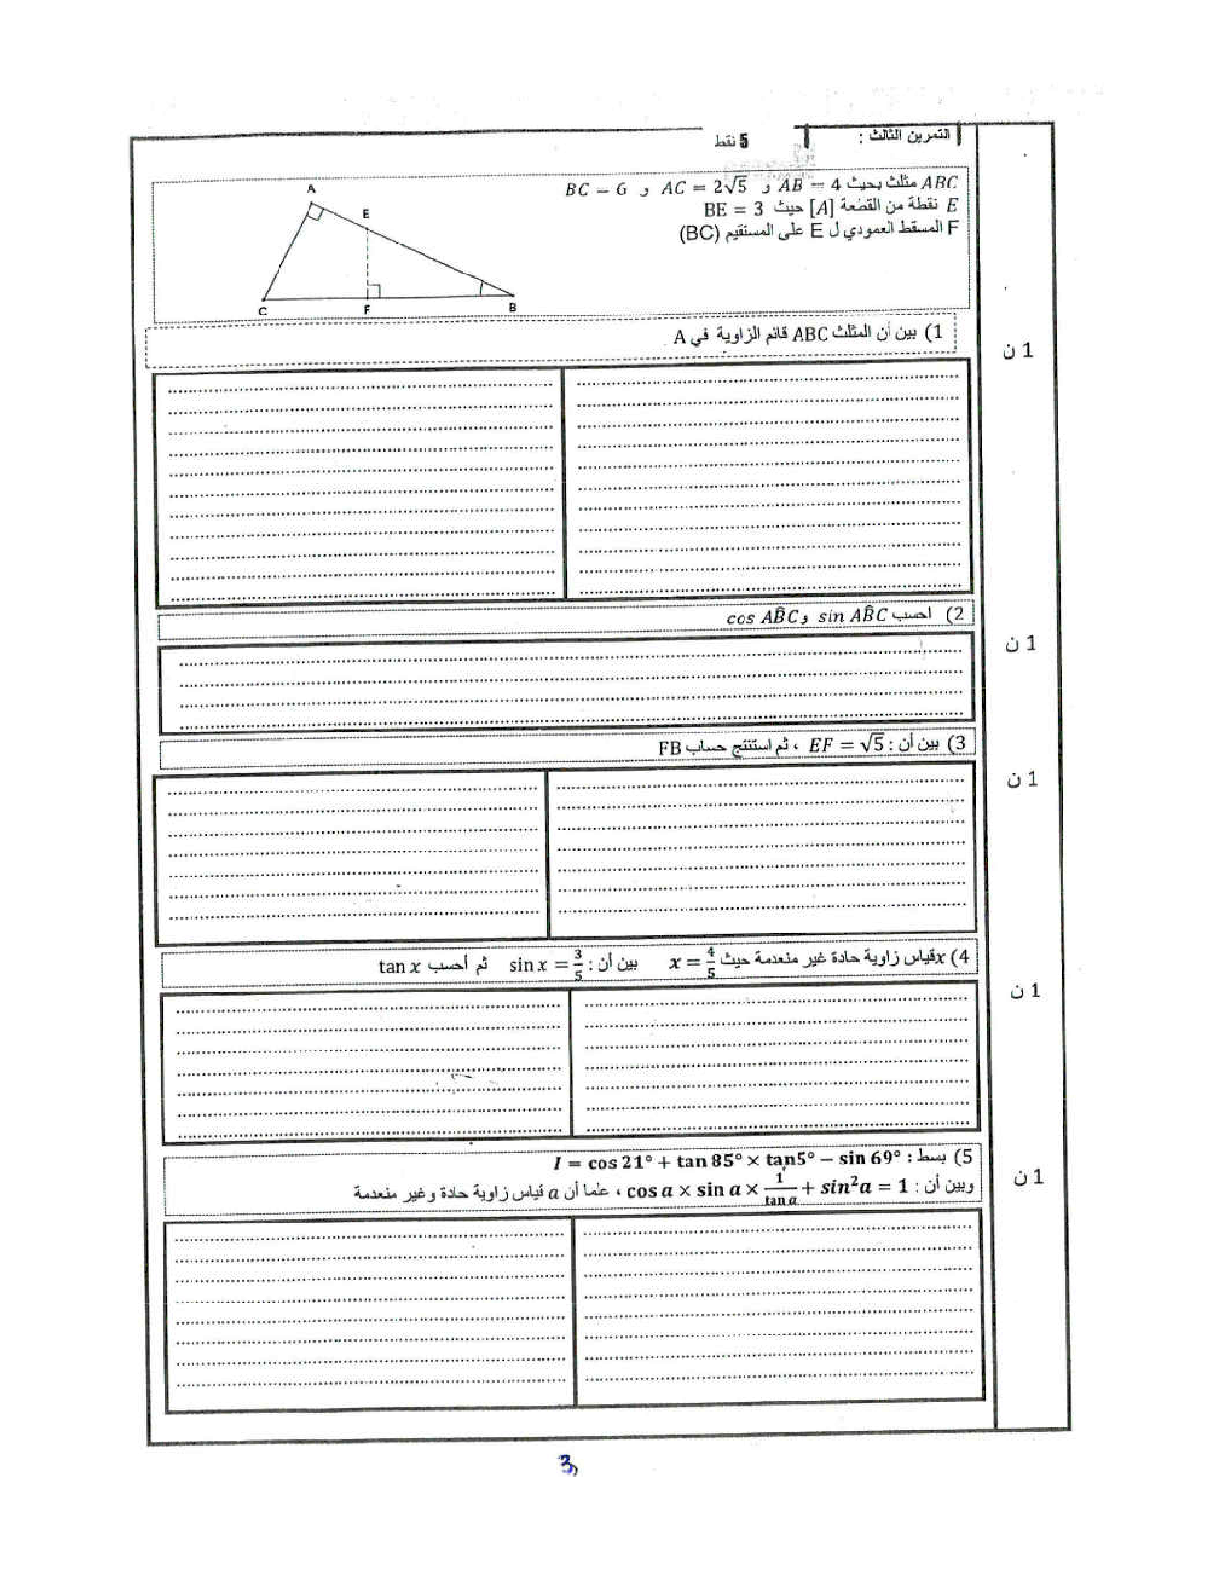 التمرين الثالث :
5 نقط
ABC مثلث بحيث AB = 4 و AC = 2√5 و BC = 6
E نقطة من القطعة [A] حيث BE = 3
F المسقط العمودي ل E على المستقيم (BC)
A
E
C
F
B
1) بين أن المثلث ABC قائم الزاوية في A
1 ن
2) أحسب sin AB̂C و cos AB̂C
1 ن
3) بين أن : EF = √5 ، ثم استنتج حساب FB
1 ن
4) x قياس زاوية حادة غير منعدمة حيث x = 4/5 بين أن : sin x = 3/5 ثم أحسب tan x
1 ن
5) بسط : I = cos 21° + tan 85° × tan5° − sin 69°
وبين أن : cos a × sin a × 1/tan a + sin²a = 1 ، علما أن a قياس زاوية حادة وغير منعدمة
1 ن
3